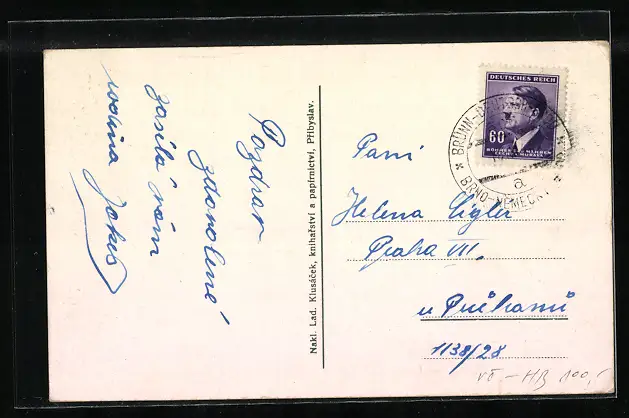 Pozdrav
z dovolené
zasílá Vám
rodina
Nakl. Lad. Klusáček, knihařství a papírnictví, Přibyslav.
DEUTSCHES REICH
60
BÖHMEN UND MÄHREN
ČECHY A MORAVA
BRÜNN-
a
BRNO-NĚMECKÝ
Paní
Helena
Praha VII.
u Průhonů
1138/28